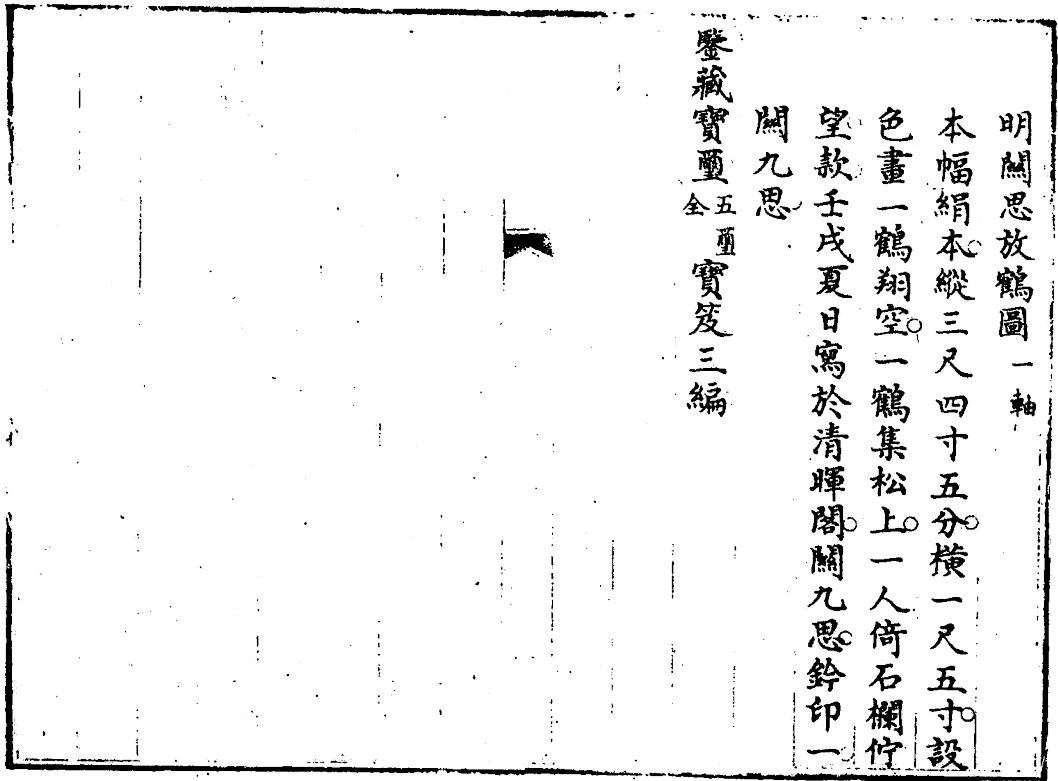 明關思放鶴圖 一軸
本幅絹本縱三尺四寸五分橫一尺五寸設
色畫一鶴翔空一鶴集松上一人倚石欄佇
望款壬戌夏日寫於清暉閣關九思鈐印一
關九思
鑒藏寶璽 五璽全 寶笈三編